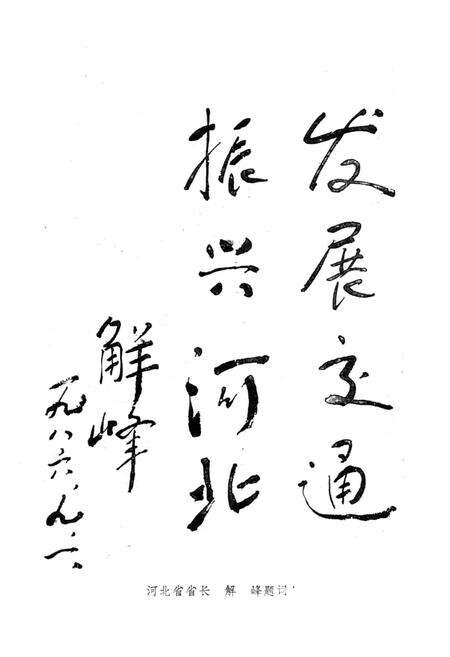 发展交通
振兴河北
解峰
一九八六.九.一六
河北省省长 解 峰题词